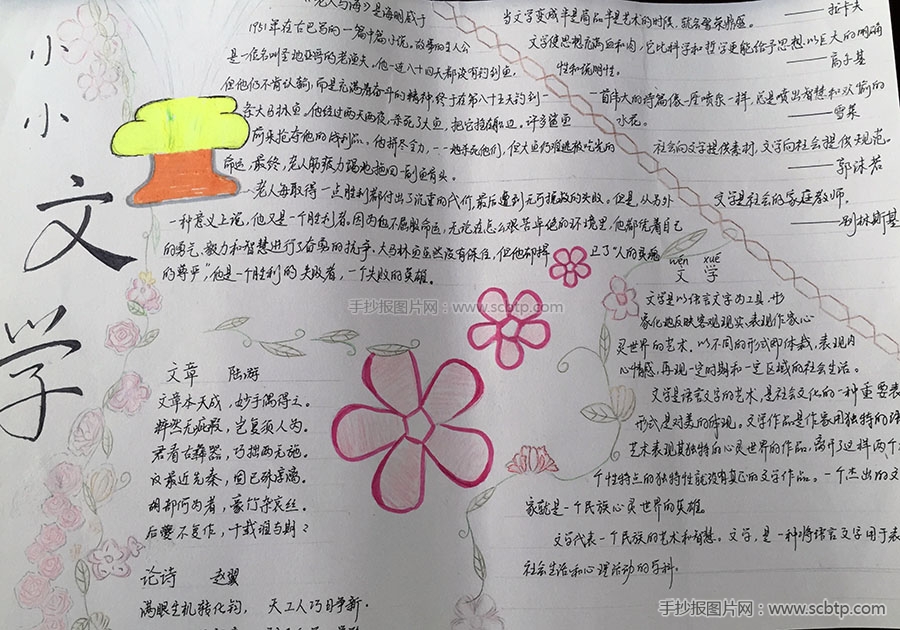 小小文学
《老人与海》是海明威于
1951年在古巴写的一篇中篇小说。故事的主人公
是一位名叫圣地亚哥的老渔夫。他一连八十四天都没有钓到鱼,
但他仍不肯认输,而是充满着奋斗的精神,终于在第八十五天钓到一
条大马林鱼。他经过两天两夜,杀死了大鱼,把它拴在船边。许多鲨鱼
前来抢夺他的战利品。他拼尽全力,一一地杀死他们,但大鱼仍难逃被吃光的
命运,最终,老人筋疲力竭地拖回一副鱼骨头。
老人每取得一点胜利都付出了沉重的代价,最后遭到无可挽救的失败。但是,从另外
一种意义上说,他又是一个胜利者。因为他不屈服命运,无论在怎么艰苦卓绝的环境里,他都凭着自己
的勇气、毅力和智慧进行了奋勇的抗争。大马林鱼虽然没有保住,但他却捍卫了“人的灵魂
的尊严”,他是一个胜利的失败者,一个失败的英雄。
当文学变成半是商品半是艺术的时候,就会繁荣鼎盛。
——拉卡夫
文学使思想充满血和肉,它比科学和哲学更能给予思想以巨大的明确
性和说明性。
——高尔基
一首伟大的诗篇像一座喷泉一样,总是喷出智慧和欢愉的
水花。
——雪莱
社会向文学提供素材,文学向社会提供规范。
——郭沫若
文学是社会的家庭教师。
——别林斯基
wén xué
文 学
文学是以语言文字为工具,形
象化地反映客观现实、表现作家心
灵世界的艺术,以不同的形式即体裁,表现内
心情感,再现一定时期和一定区域的社会生活。
文学是语言文字的艺术,是社会文化的一种重要表
形式,是对美的体现。文学作品是作家用独特的语
艺术表现其独特的心灵世界的作品,离开了这样两个
个性特点的独特性就没有真正的文学作品。一个杰出的文
家就是一个民族心灵世界的英雄。
文学代表一个民族的艺术和智慧。文学,是一种将语言文字用于表
社会生活和心理活动的学科。
文章 陆游
文章本天成,妙手偶得之。
粹然无疵瑕,岂复须人为。
君看古彝器,巧拙两无施。
汉最近先秦,固已殊淳漓。
胡部何为者,豪竹杂哀丝。
后夔不复作,千载谁与期?
论诗 赵翼
满眼生机转化钧, 天工人巧日争新.
手抄报图片网:www.scbtp.com
手抄报图片网:www.scbtp.com